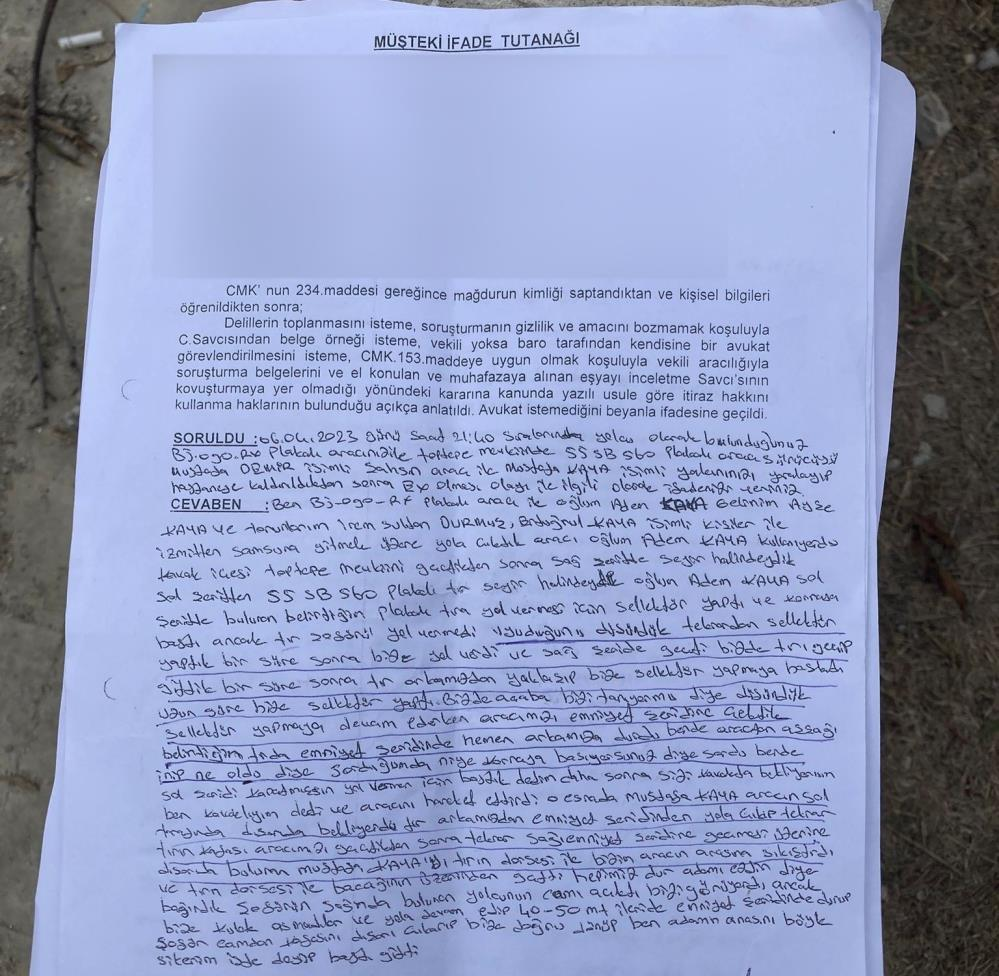 MÜŞTEKİ İFADE TUTANAĞI
CMK' nun 234.maddesi gereğince mağdurun kimliği saptandıktan ve kişisel bilgileri
öğrenildikten sonra;
Delillerin toplanmasını isteme, soruşturmanın gizlilik ve amacını bozmamak koşuluyla
C.Savcısından belge örneği isteme, vekili yoksa baro tarafından kendisine bir avukat
görevlendirilmesini isteme, CMK.153.maddeye uygun olmak koşuluyla vekili aracılığıyla
soruşturma belgelerini ve el konulan ve muhafazaya alınan eşyayı inceletme Savcı'sının
kovuşturmaya yer olmadığı yönündeki kararına kanunda yazılı usule göre itiraz hakkını
kullanma haklarının bulunduğu açıkça anlatıldı. Avukat istemediğini beyanla ifadesine geçildi.
SORULDU : 06.04.2023 günü saat 21:40 sıralarında yolcu olarak bulunduğunuz
plakalı aracınızla toptepe mevkiinde 55 SB 560 plakalı araç sürücüsü
Mustafa isimli şahsın aracı ile Mustafa KAYA isimli yakınınızı yaralayıp
hastaneye kaldırıldıktan sonra Ex olması olayı ile ilgili olarak ifadenizi veriniz
CEVABEN : Ben plakalı araç ile oğlum Gelinim Ayşe
KAYA ve torunlarım irem sultan DURMUŞ, Ertuğrul KAYA isimli kişiler ile
izmitten samsuna gitmek üzere yola çıktık aracı oğlum Adem KAYA kullanıyordu
kavak ilçesi toptepe mevkiini geçtikten sonra sağ şeritte seyir halindeydik
sol şeritten 55 SB 560 plakalı tır seyir halindeydi oğlum Adem KAYA sol
şeritte bulunan belirttiğim plakalı tıra yol vermesi için sellektör yaptı ve kornaya
bastı ancak tır şoförü yol vermedi uyuduğunu düşündük tekrardan sellektör
yaptık bir süre sonra bize yol verdi ve sağ şeride geçti bizde tırı geçip
gittik bir süre sonra tır arkamızdan yaklaşıp bize sellektör yapmaya başladı
uzun süre bize sellektör yaptı. Bizde acaba bizi tanıyormu diye düşündük
sellektör yapmaya devam ederken aracımızı emniyet şeridine çektik
belirttiğim tırda emniyet şeridinde hemen arkamızda durdu bende araçtan aşşağı
inip ne oldu diye sorduğumda niye kornaya basıyorsunuz diye sordu bende
sol şeridi kapatmışsın yol vermen için bastık dedim daha sonra sizi kavakda bekliyorum
ben kavaklıyım dedi ve aracını hareket ettirdi o esnada Mustafa KAYA aracın sol
tarafında dışarıda bekliyordu tır arkamızdan emniyet şeridinden yola çıkıp tekrar
tırın kafası aracımızı geçtikten sonra tekrar sağ emniyet şeridine geçmesi üzerine
dışarıda bulunan mustafa KAYA'yı tırın dorsesi ile bizim aracın arasına sıkıştırdı
ve tırın dorsesi ile bacağının üzerinden geçti hepimiz dur adamı ezdin diye
bağırdık şoförün sağında bulunan yolcunun camı açıktı bizi görüyordu ancak
bize kulak asmadılar ve yola devam edip 40-50 mt ileride emniyet şeridinde durup
şoför camdan kafasını dışarı çıkarıp bize doğru dönüp ben adamın anasını böyle
sikerim işte deyip bastı gitti